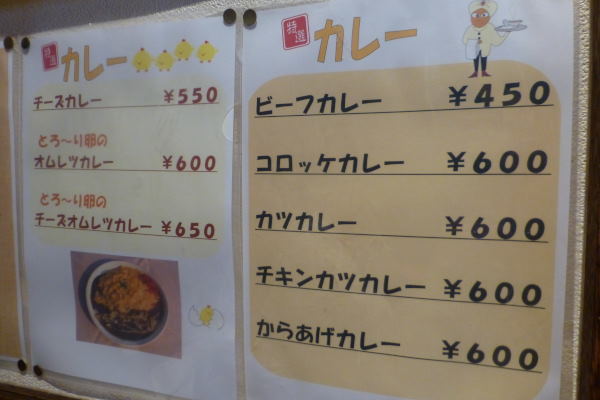 特選
カレー
チーズカレー ¥550
とろ〜り卵の
オムレツカレー ¥600
とろ〜り卵の
チーズオムレツカレー ¥650
特選
カレー
ビーフカレー ¥450
コロッケカレー ¥600
カツカレー ¥600
チキンカツカレー ¥600
からあげカレー ¥600